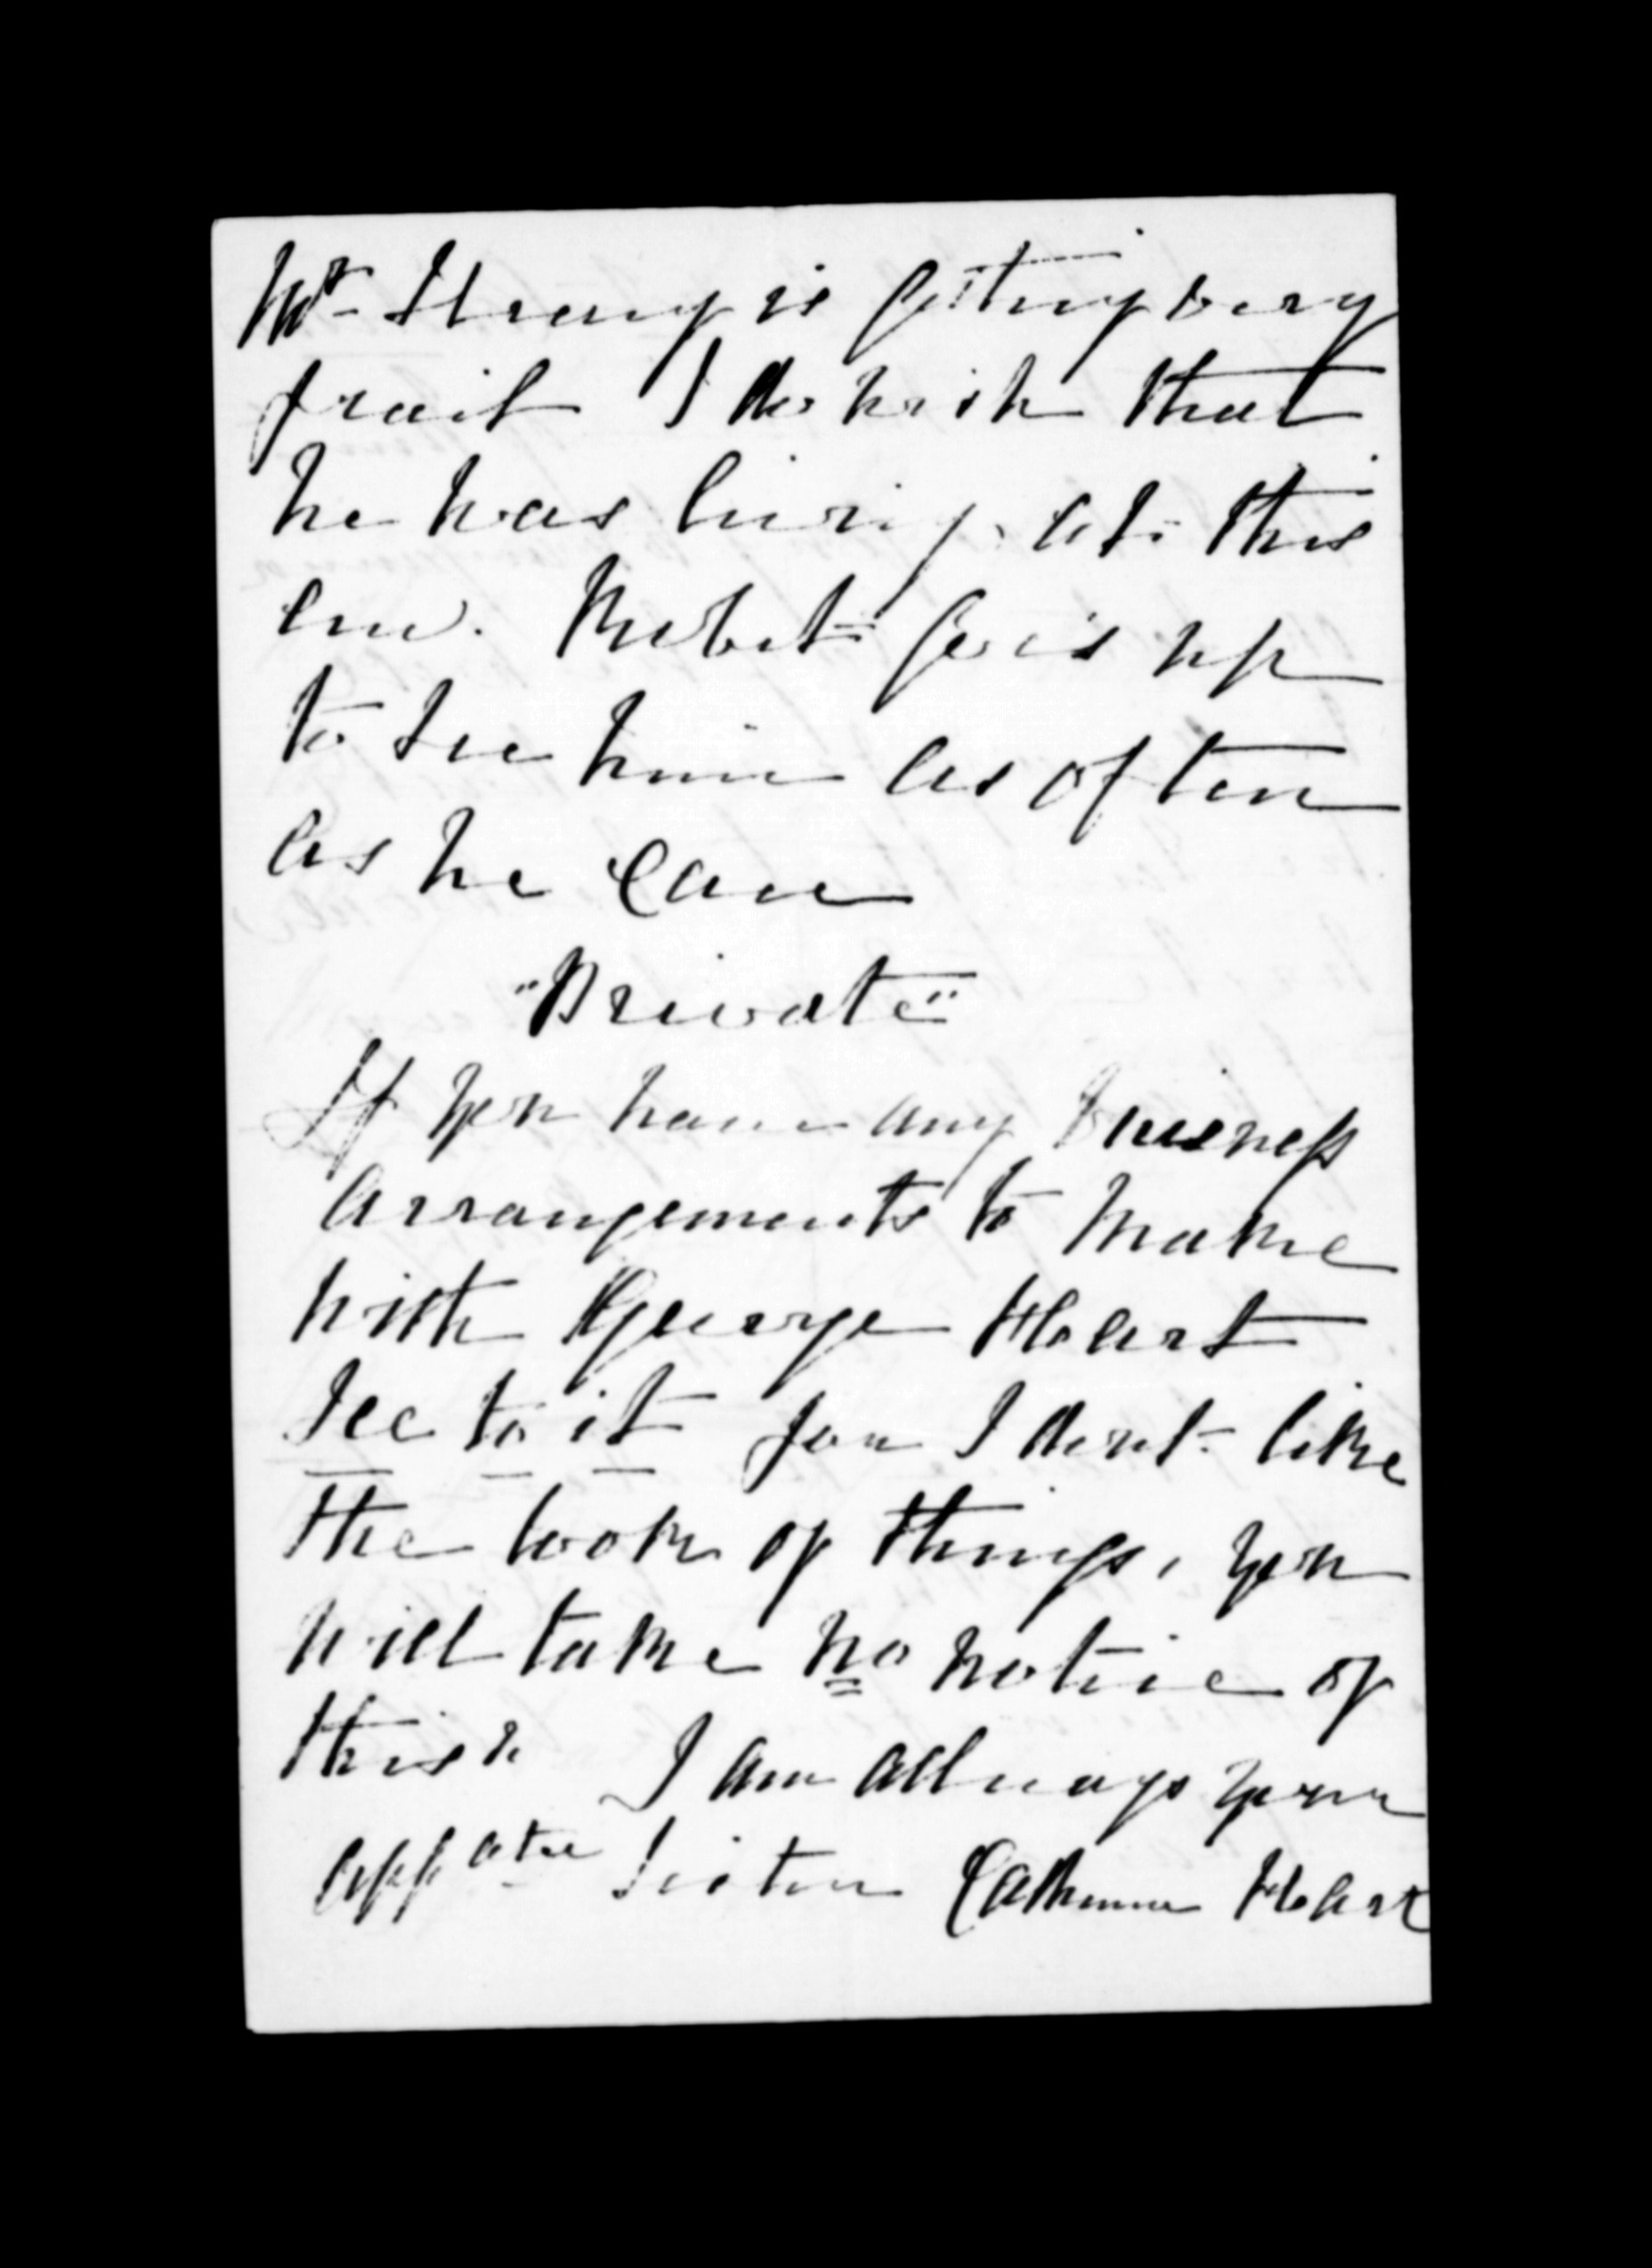 Mr Strang is getting very
frail I do wish that
he was living at this
end. Robert goes up
to see him as often
as he can
"Private"
If you have any business
arrangements to make
with George Hoart
see to it for I dont like
the look of things, you
will take no notice of
this. I am allways your
affate Sister Catherine Hoart